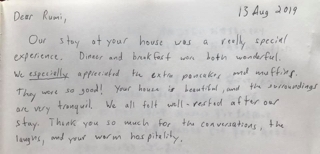 13 Aug 2019
Dear Rumi,
Our stay at your house was a really special
experience. Dinner and breakfast were both wonderful.
We especially appreciated the extra pancakes and muffins.
They were so good! Your house is beautiful, and the surroundings
are very tranquil. We all felt well-rested after our
stay. Thank you so much for the conversations, the
laughs, and your warm hospitality.